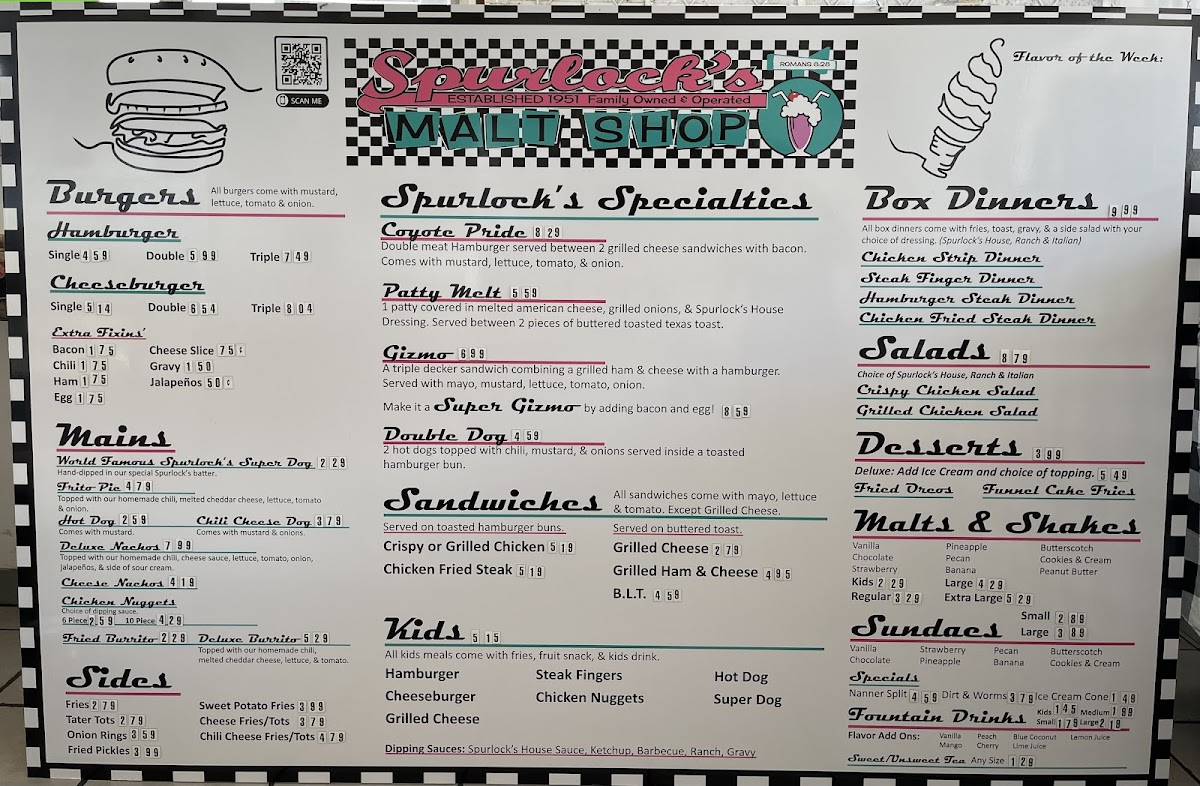 SCAN ME
Spurlock's
ESTABLISHED 1951 Family Owned & Operated
MALT SHOP
ROMANS 8:28
Flavor of the Week:
Burgers
All burgers come with mustard,
lettuce, tomato & onion.
Hamburger
Single 4 59 Double 5 99 Triple 7 49
Cheeseburger
Single 5 14 Double 6 54 Triple 8 04
Extra Fixins'
Bacon 1 75 Cheese Slice 75 ¢
Chili 1 75 Gravy 1 50
Ham 1 75 Jalapeños 50 ¢
Egg 1 75
Mains
World Famous Spurlock's Super Dog 2 29
Hand-dipped in our special Spurlock's batter.
Frito Pie 4 79
Topped with our homemade chili, melted cheddar cheese, lettuce, tomato
& onion.
Hot Dog 2 59 Chili Cheese Dog 3 79
Comes with mustard. Comes with mustard & onions.
Deluxe Nachos 7 99
Topped with our homemade chili, cheese sauce, lettuce, tomato, onion,
jalapeños, & side of sour cream.
Cheese Nachos 4 19
Chicken Nuggets
Choice of dipping sauce.
6 Piece 2 59 10 Piece 4 29
Fried Burrito 2 29 Deluxe Burrito 5 29
Topped with our homemade chili,
melted cheddar cheese, lettuce, & tomato.
Sides
Fries 2 79 Sweet Potato Fries 3 99
Tater Tots 2 79 Cheese Fries/Tots 3 79
Onion Rings 3 59 Chili Cheese Fries/Tots 4 79
Fried Pickles 3 99
Spurlock's Specialties
Coyote Pride 8 29
Double meat Hamburger served between 2 grilled cheese sandwiches with bacon.
Comes with mustard, lettuce, tomato, & onion.
Patty Melt 5 59
1 patty covered in melted american cheese, grilled onions, & Spurlock's House
Dressing. Served between 2 pieces of buttered toasted texas toast.
Gizmo 6 99
A triple decker sandwich combining a grilled ham & cheese with a hamburger.
Served with mayo, mustard, lettuce, tomato, onion.
Make it a Super Gizmo by adding bacon and egg! 8 59
Double Dog 4 59
2 hot dogs topped with chili, mustard, & onions served inside a toasted
hamburger bun.
Sandwiches
All sandwiches come with mayo, lettuce
& tomato. Except Grilled Cheese.
Served on toasted hamburger buns. Served on buttered toast.
Crispy or Grilled Chicken 5 19 Grilled Cheese 2 79
Chicken Fried Steak 5 19 Grilled Ham & Cheese 4 95
B.L.T. 4 59
Kids 5 15
All kids meals come with fries, fruit snack, & kids drink.
Hamburger Steak Fingers Hot Dog
Cheeseburger Chicken Nuggets Super Dog
Grilled Cheese
Dipping Sauces: Spurlock's House Sauce, Ketchup, Barbecue, Ranch, Gravy
Box Dinners 9 99
All box dinners come with fries, toast, gravy, & a side salad with your
choice of dressing. (Spurlock's House, Ranch & Italian)
Chicken Strip Dinner
Steak Finger Dinner
Hamburger Steak Dinner
Chicken Fried Steak Dinner
Salads 8 79
Choice of Spurlock's House, Ranch & Italian
Crispy Chicken Salad
Grilled Chicken Salad
Desserts 3 99
Deluxe: Add Ice Cream and choice of topping. 5 49
Fried Oreos Funnel Cake Fries
Malts & Shakes
Vanilla Pineapple Butterscotch
Chocolate Pecan Cookies & Cream
Strawberry Banana Peanut Butter
Kids 2 29 Large 4 29
Regular 3 29 Extra Large 5 29
Sundaes
Small 2 89
Large 3 89
Vanilla Strawberry Pecan Butterscotch
Chocolate Pineapple Banana Cookies & Cream
Specials
Nanner Split 4 59 Dirt & Worms 3 79 Ice Cream Cone 1 49
Fountain Drinks
Kids 1 45 Medium 1 99
Small 1 79 Large 2 19
Flavor Add Ons: Vanilla Peach Blue Coconut Lemon Juice
Mango Cherry Lime Juice
Sweet/Unsweet Tea Any Size 1 29